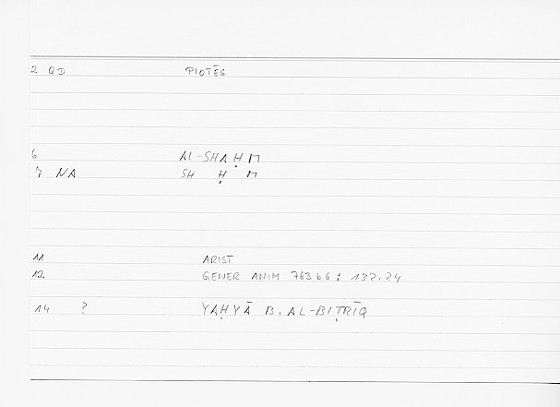 2 QD PIOTĒS
6 AL-SHAḤM
7 NA SH Ḥ M
11 ARIST
12. GENER ANIM 763b6 : 132.24
14 ? YAḤYĀ B. AL-BIṬRĪQ